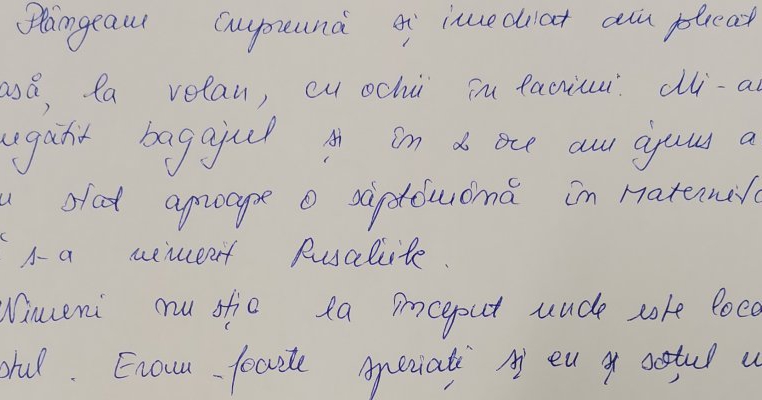 Plângeam împreună și imediat am plecat
asă, la volan, cu ochii în lacrimi. Mi-a
egătit bagajul și în 2 ore am ajuns a
stat aproape o săptămână în Maternit
s-a nimerit Rusaliile.
Nimeni nu știa la început unde este loca
stul. Eram foarte speriați și eu și soțul